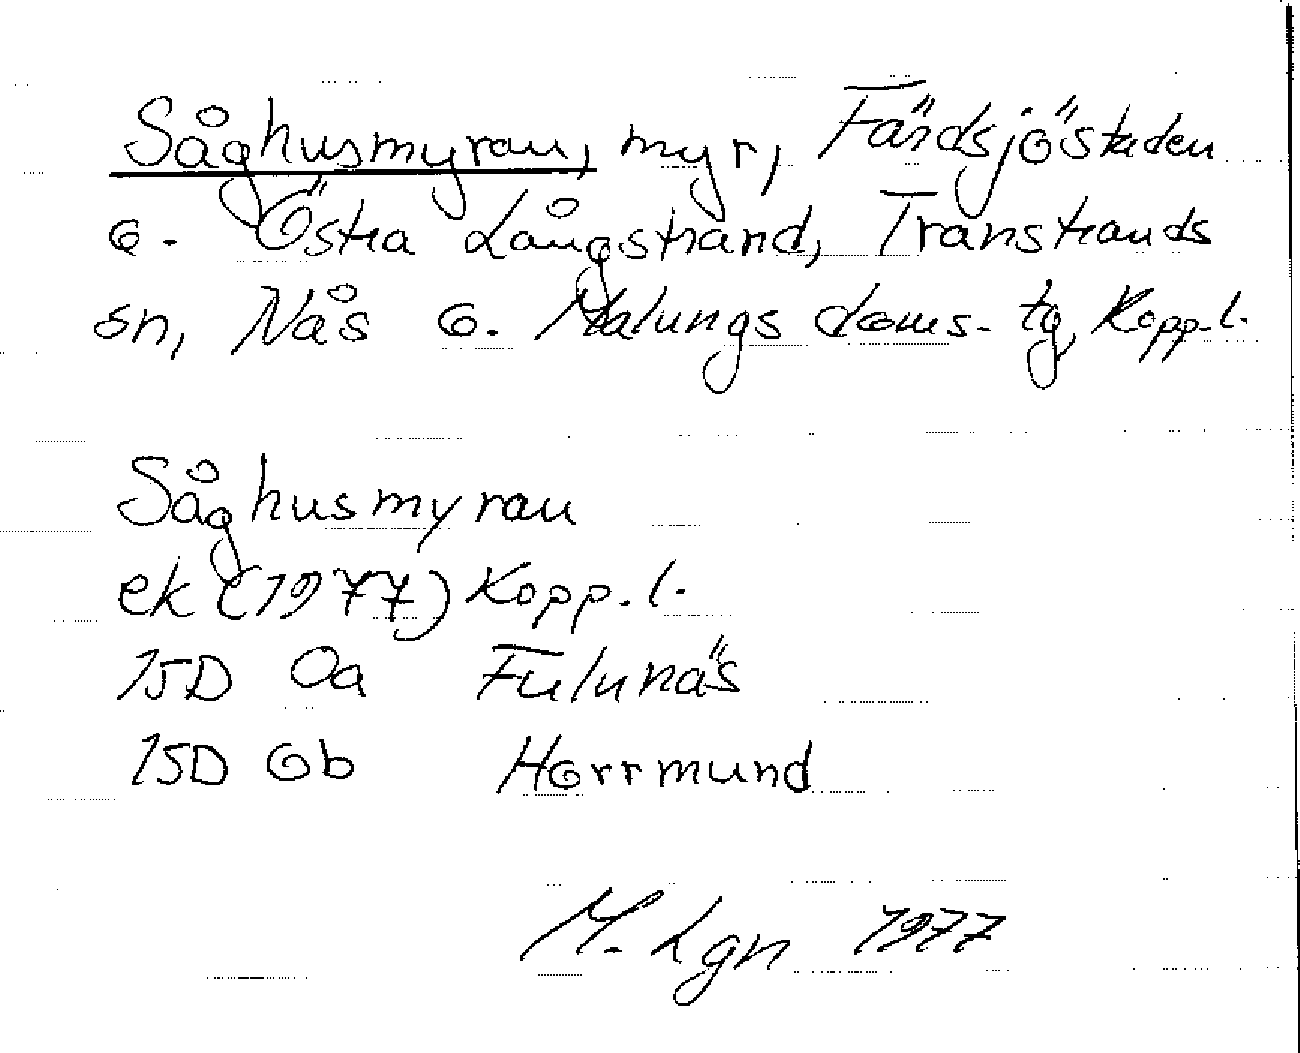 Såghusmyran, myr, Färdsjöstaden
o. Östra Långstrand, Transtrands
sn, Nås o. Malungs doms. tg, Kopp. l.
Såghusmyran
ek (1977) Kopp. l.
15D 0a Fulunäs
15D 0b Horrmund
M. Lgn 1977